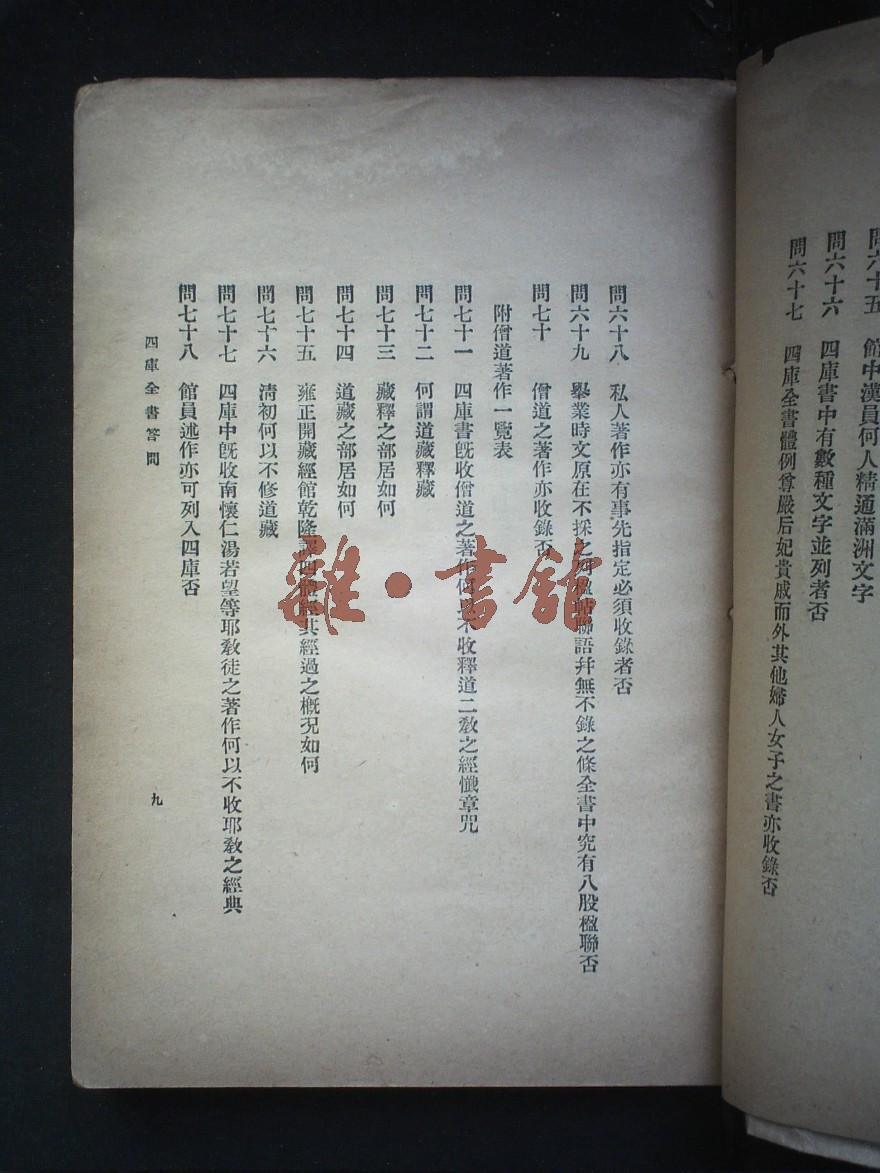 問六十五　館中漢員何人精通滿洲文字
問六十六　四庫書中有數種文字並列者否
問六十七　四庫全書體例尊嚴后妃貴戚而外其他婦人女子之書亦收錄否
問六十八　私人著作亦有事先指定必須收錄者否
問六十九　舉業時文原在不採之列楹帖聯語幷無不錄之條全書中究有八股楹聯否
問七十　僧道之著作亦收錄否
附僧道著作一覽表
問七十一　四庫書旣收僧道之著作何以不收釋道二敎之經懺章咒
問七十二　何謂道藏釋藏
問七十三　藏釋之部居如何
問七十四　道藏之部居如何
問七十五　雍正開藏經館乾隆譯四體經其經過之槪況如何
問七十六　淸初何以不修道藏
問七十七　四庫中旣收南懷仁湯若望等耶敎徒之著作何以不收耶敎之經典
問七十八　館員述作亦可列入四庫否
四庫全書答問
九
雜·書館